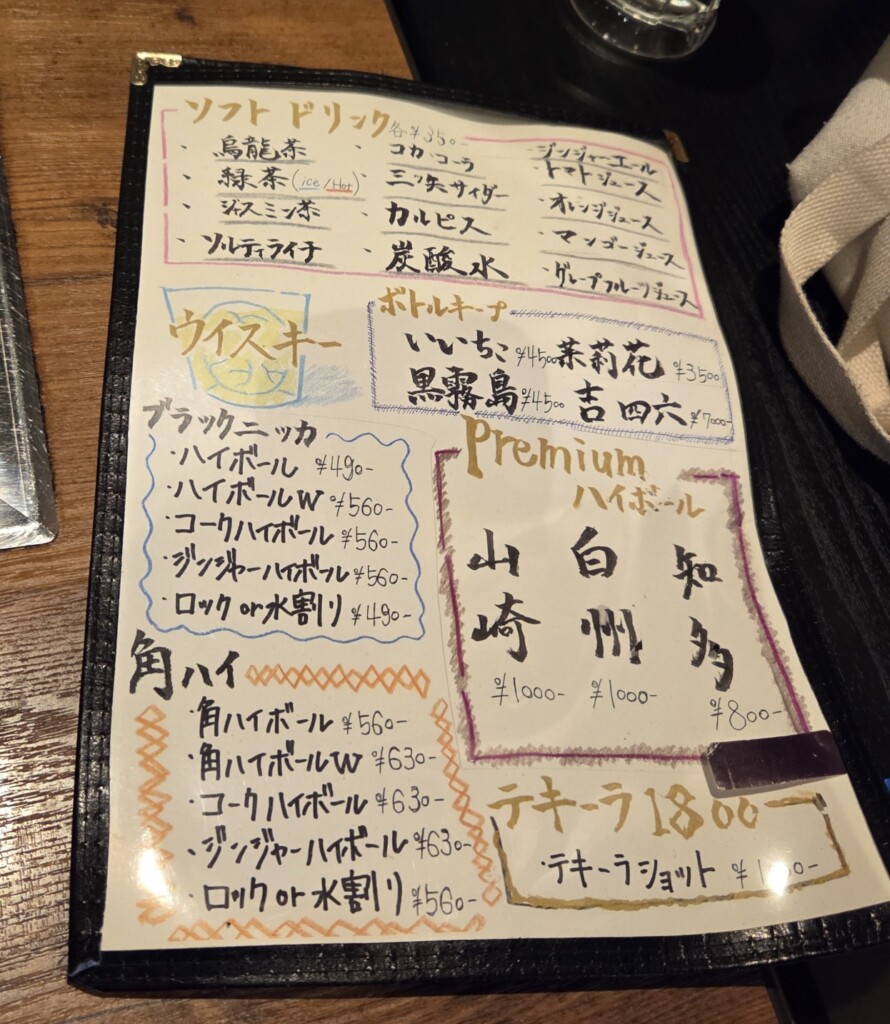 ソフトドリンク 各¥350-
・烏龍茶
・緑茶(ice/Hot)
・ジャスミン茶
・ソルティライチ
・コカ・コーラ
・三ツ矢サイダー
・カルピス
・炭酸水
・ジンジャーエール
・トマトジュース
・オレンジジュース
・マンゴージュース
・グレープフルーツジュース
ウイスキー
ボトルキープ
いいちこ ¥4500 茉莉花 ¥3500
黒霧島 ¥4500 吉四六 ¥7000-
ブラックニッカ
・ハイボール ¥490-
・ハイボールW ¥560-
・コークハイボール ¥560-
・ジンジャーハイボール ¥560-
・ロック or 水割り ¥490-
角ハイ
・角ハイボール ¥560-
・角ハイボールW ¥630-
・コークハイボール ¥630-
・ジンジャーハイボール ¥630-
・ロック or 水割り ¥560-
Premium
ハイボール
山崎 ¥1000-
白州 ¥1000-
知多 ¥800-
テキーラ 1800
・テキーラショット